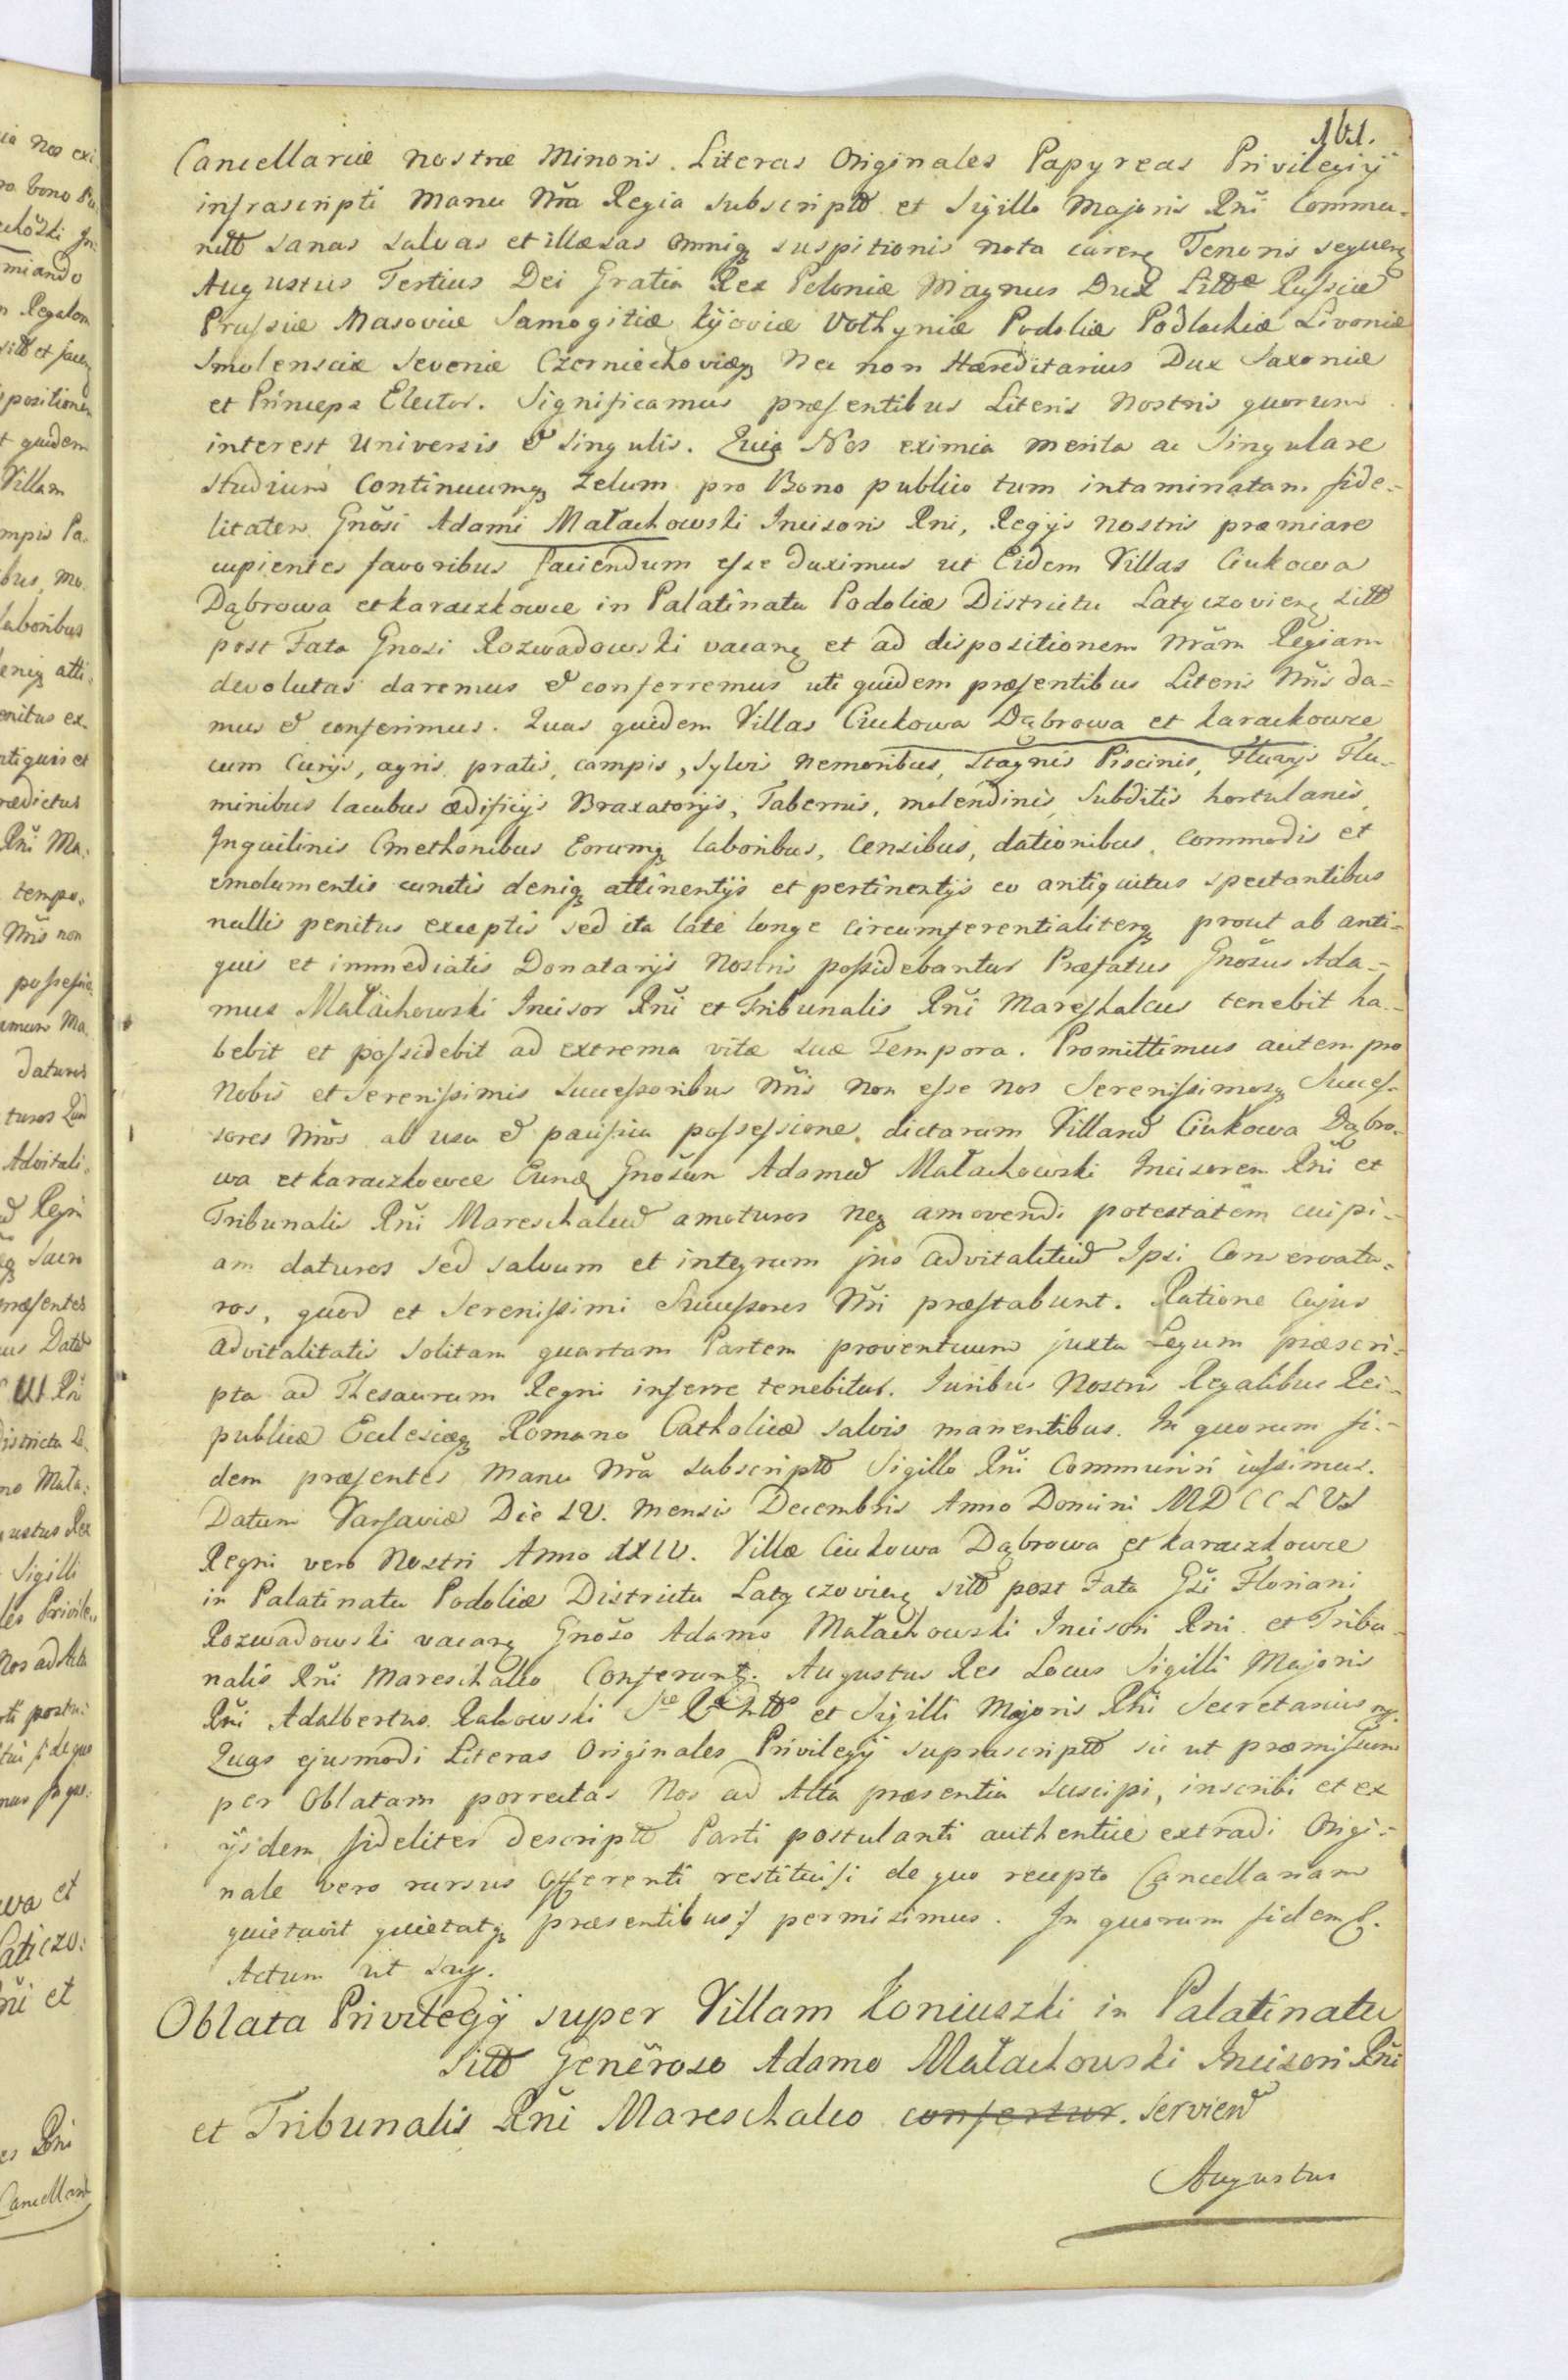 161.
Cancellariæ nostræ Minoris. Literas Originales Papyreas Privilegij
infrascripti Manu Nrã Regia subscriptð et Sigillo Majoris Rñi Commu-
nitð sanas salvas et illæsas omniq suspitionis nota careñ Tenoris sequeñ
Augustus Tertius Dei Gratia Rex Poloniæ Magnus Dux Littðæ Russiæ
Prussiæ Masoviæ Samogitiæ Kijoviæ Volhyniæ Podoliæ Podlachiæ Livoniæ
Smolensciæ Severiæ Czerniechoviæq Nec non Hæreditarius Dux Saxoniæ
et Princeps Elector. Significamus præsentibus Literis Nostris quorum
interest Universis & singulis. Quia Nos eximia merita ac Singulare
studium Continuumq zelum pro Bono publico tum intaminatam fide-
litatem Gnõsi Adami Małachowski Incisoris Rni, Regijs nostris præmiare
cupientes favoribus faciendum esse duximus ut Eidem Villas Ciukowa
Dąbrowa et Karaczkowce in Palatinatu Podoliæ Districtu Latyczovieñ sitð
post Fata Gnosi Rozwadowski vacañ et ad dispositionem Nrãm Regiam
devolutas daremus & conferremus uti quidem præsentibus Literis Nrĩs da-
mus & conferimus. Quas quidem Villas Ciukowa Dąbrowa et Karackowce
cum Curijs, agris, pratis, campis, sylvis nemoribus, Stagnis Piscinis, Fluvijs Flu-
minibus lacubus ædificijs Braxatorijs, Tabernis, molendinis, Subditis hortulanis,
Inquilinis Cmethonibus Eorumq laboribus, Censibus, dationibus, Commodis et
emolumentis cunctis deniq attinentijs et pertinentijs eo antiquitus spectantibus
nullis penitus exceptis sed ita late longe circumferentialiterq prout ab anti-
quis et immediatis Donatarijs Nostris possidebantur Præfatus Gnõsus Ada-
mus Małachowski Incisor Rñi et Tribunalis Rñi Mareshalcus tenebit ha-
bebit et possidebit ad extrema vitæ suæ Tempora. Promittimus autem pro
Nobis et Serenissimis Successoribus Nrĩs Non esse Nos Serenissimosq Succes-
sores Nrõs ab usu & pacifica possessione dictarum Villarũ Ciukowa Dąbro-
wa et Karaczkowce Eunð Gnõsum Adamũ Małachowski Incisorem Rñi et
Tribunalis Rñi Mareschalcũ amoturos neq amovendi potestatem cuipi-
am daturos sed salvum et integrum jus advitalitiũ Ipsi Conservatu-
ros, quod et Serenissimi Successores Nrĩ præstabunt. Ratione Cujus
advitalitatis solitam quartam Partem proventuum juxta Legum præscri-
pta ad Thesaurum Regni inferre tenebitur. Juribus Nostris Regalibus Rei-
publicæ Ecclesiæq Romano Catholicæ salvis manentibus. In quorum fi-
dem præsentes manu Nrã subscriptð Sigillo Rñi Communiri iussimus.
Datum Varsaviæ Die LV. Mensis Decembris Anno Domini MDCCLVI
Regni vero Nostri Anno XXIV. Villæ Ciukowa Dąbrowa et Karaczkowce
in Palatinatu Podoliæ Districtu Latyczovieñ sitð post Fata Gsĩ Floriani
Rozwadowski vacañ Gnõso Adamo Małachowski Incisori Rni et Tribu-
nalis Rñi Mareschalco Conferunt. Augustus Rex Locus Sigilli Majoris
Rñi Adalbertus Rakowski et Sigilli Majoris Rñi Secretarius
Quas ejusmodi Literas Originales Privilegij suprascriptð sic ut præmissum
per Oblatam porrectas Nos ad Acta præsentia suscipi, inscribi et ex
ijsdem fideliter descriptð Parti postulanti authentice extradi Origi-
nale vero rursus Offerenti restitui /: de quo recepto Cancellariam
quietavit quietatq præsentibus :/ permisimus. In quorum fidem &.
Actum ut sup.
Oblata Privilegij super Villam Koniuszki in Palatinatu
sitð Generoso Adamo Małachowski Incisori Rñi
et Tribunalis Rñi Mareschalco confertur. Servienð
Augustus